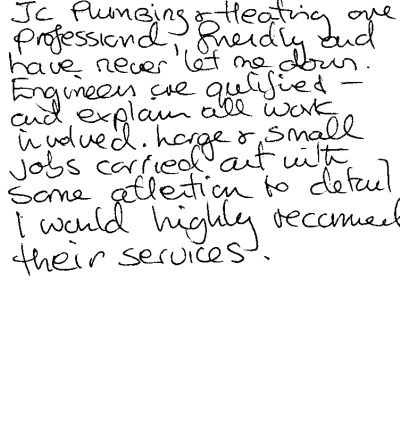 JC Plumbing & Heating are
professional, friendly and
have never let me down.
Engineers are qualified –
and explain all work
involved. Large & small
jobs carried out with
same attention to detail
I would highly recommend
their services.